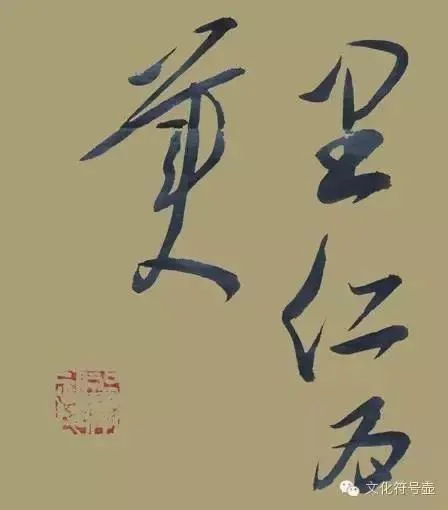 里仁為
美
文化符号壶